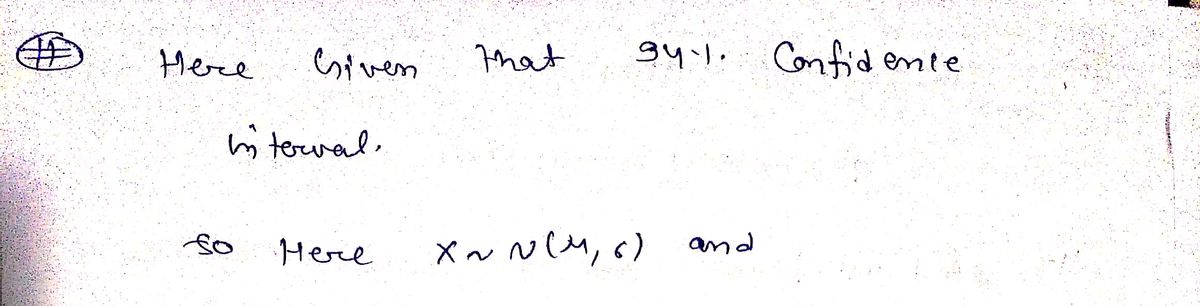 # Here Given that 94%. Confidence
interval.
so Here X ~ N(μ, σ) and